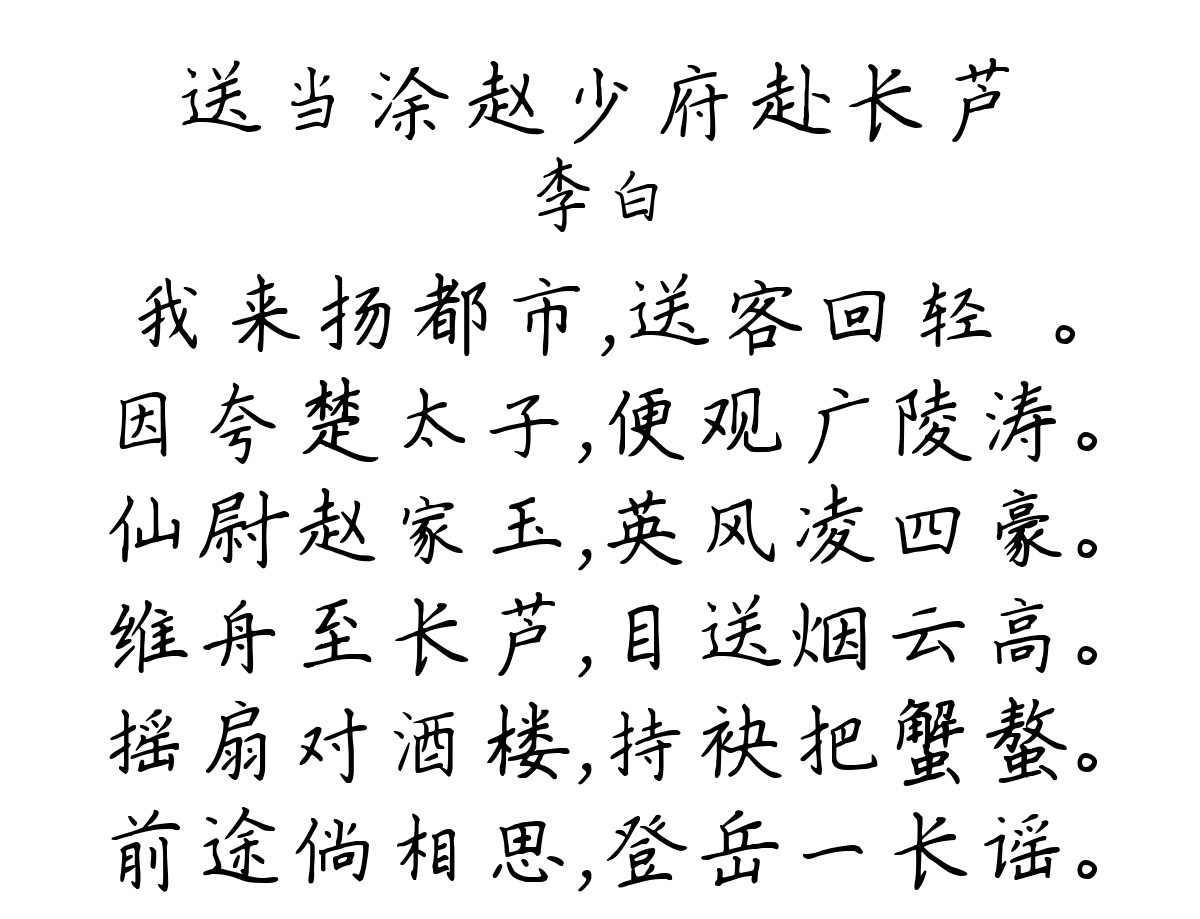 送当涂赵少府赴长芦
李白
我来扬都市,送客回轻 。
因夸楚太子,便观广陵涛。
仙尉赵家玉,英风凌四豪。
维舟至长芦,目送烟云高。
摇扇对酒楼,持袂把蟹螯。
前途倘相思,登岳一长谣。